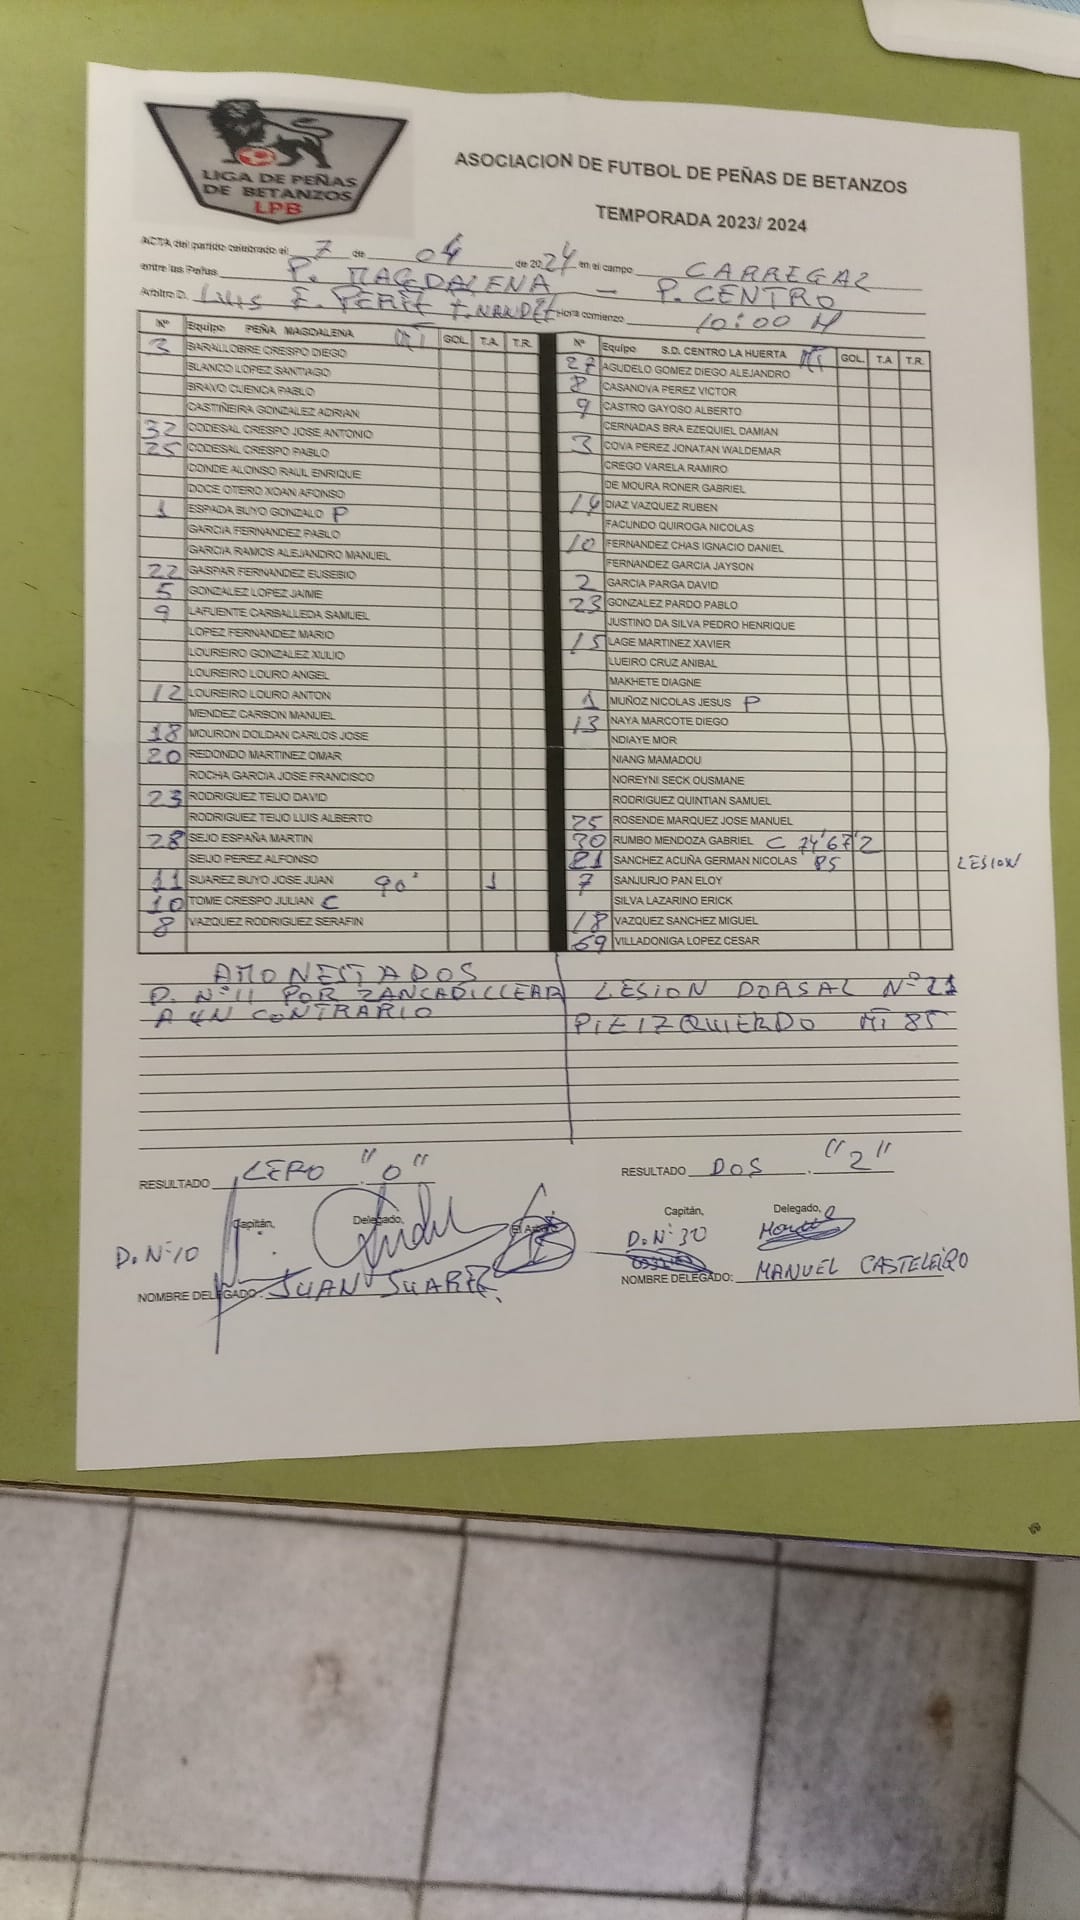 LIGA DE PEÑAS
DE BETANZOS
LPB
ASOCIACION DE FUTBOL DE PEÑAS DE BETANZOS
TEMPORADA 2023/ 2024
ACTA del partido celebrado el 7 de 04 de 2024 en el campo CARREGAL
entre las Peñas P. MAGDALENA - P. CENTRO
Arbitro D. LUIS Hora comienzo 10:00 H
Nº Equipo PEÑA MAGDALENA MT GOL. T.A. T.R.
3 BARALLOBRE CRESPO DIEGO
BLANCO LOPEZ SANTIAGO
BRAVO CUENCA PABLO
CASTIÑEIRA GONZALEZ ADRIAN
32 CODESAL CRESPO JOSE ANTONIO
25 CODESAL CRESPO PABLO
CONDE ALONSO RAUL ENRIQUE
DOCE OTERO XOAN AFONSO
1 ESPADA BUYO GONZALO P
GARCIA FERNANDEZ PABLO
GARCIA RAMOS ALEJANDRO MANUEL
22 GASPAR FERNANDEZ EUSEBIO
5 GONZALEZ LOPEZ JAIME
9 LAFUENTE CARBALLEDA SAMUEL
LOPEZ FERNANDEZ MARIO
LOUREIRO GONZALEZ XULIO
LOUREIRO LOURO ANGEL
12 LOUREIRO LOURO ANTON
MENDEZ CARBON MANUEL
18 MOURON DOLDAN CARLOS JOSE
20 REDONDO MARTINEZ OMAR
ROCHA GARCIA JOSE FRANCISCO
23 RODRIGUEZ TEIJO DAVID
RODRIGUEZ TEIJO LUIS ALBERTO
28 SEIJO ESPAÑA MARTIN
SEIJO PEREZ ALFONSO
11 SUAREZ BUYO JOSE JUAN 90' 1
10 TOME CRESPO JULIAN C
8 VAZQUEZ RODRIGUEZ SERAFIN
Nº Equipo S.D. CENTRO LA HUERTA MT GOL. T.A. T.R.
27 AGUDELO GOMEZ DIEGO ALEJANDRO
8 CASANOVA PEREZ VICTOR
9 CASTRO GAYOSO ALBERTO
CERNADAS BRA EZEQUIEL DAMIAN
3 COVA PEREZ JONATAN WALDEMAR
CREGO VARELA RAMIRO
DE MOURA RONER GABRIEL
14 DIAZ VAZQUEZ RUBEN
FACUNDO QUIROGA NICOLAS
10 FERNANDEZ CHAS IGNACIO DANIEL
FERNANDEZ GARCIA JAYSON
2 GARCIA PARGA DAVID
23 GONZALEZ PARDO PABLO
JUSTINO DA SILVA PEDRO HENRIQUE
15 LAGE MARTINEZ XAVIER
LUEIRO CRUZ ANIBAL
MAKHETE DIAGNE
1 MUÑOZ NICOLAS JESUS P
13 NAYA MARCOTE DIEGO
NDIAYE MOR
NIANG MAMADOU
NOREYNI SECK OUSMANE
RODRIGUEZ QUINTIAN SAMUEL
25 ROSENDE MARQUEZ JOSE MANUEL
30 RUMBO MENDOZA GABRIEL C 74'67'2
21 SANCHEZ ACUÑA GERMAN NICOLAS 85 LESION
7 SANJURJO PAN ELOY
SILVA LAZARINO ERICK
18 VAZQUEZ SANCHEZ MIGUEL
69 VILLADONIGA LOPEZ CESAR
AMONESTADOS
D. Nº 11 POR ZANCADILLEAR
A UN CONTRARIO
LESION DORSAL Nº 21
PIE IZQUIERDO MT 85
RESULTADO CERO "0"
Capitán, Delegado,
D. Nº 10
NOMBRE DELEGADO: JUAN SUAREZ
RESULTADO DOS "2"
Capitán, Delegado,
D. Nº 30
NOMBRE DELEGADO: MANUEL CASTELEIRO